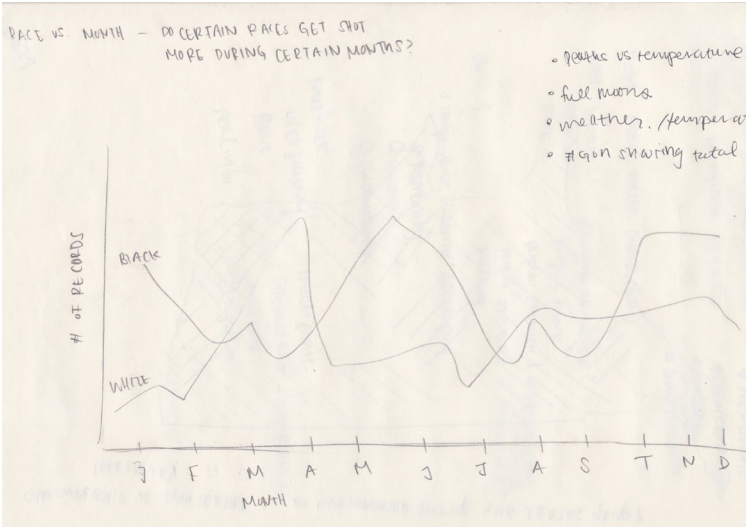 RACE VS. MONTH – DO CERTAIN RACES GET SHOT
MORE DURING CERTAIN MONTHS?
• Deaths vs temperature
• full moons
• weather. /tempera
• # Gun sharing total
# OF RECORDS
BLACK
WHITE
J F M A M J J A S T N D
MONTH